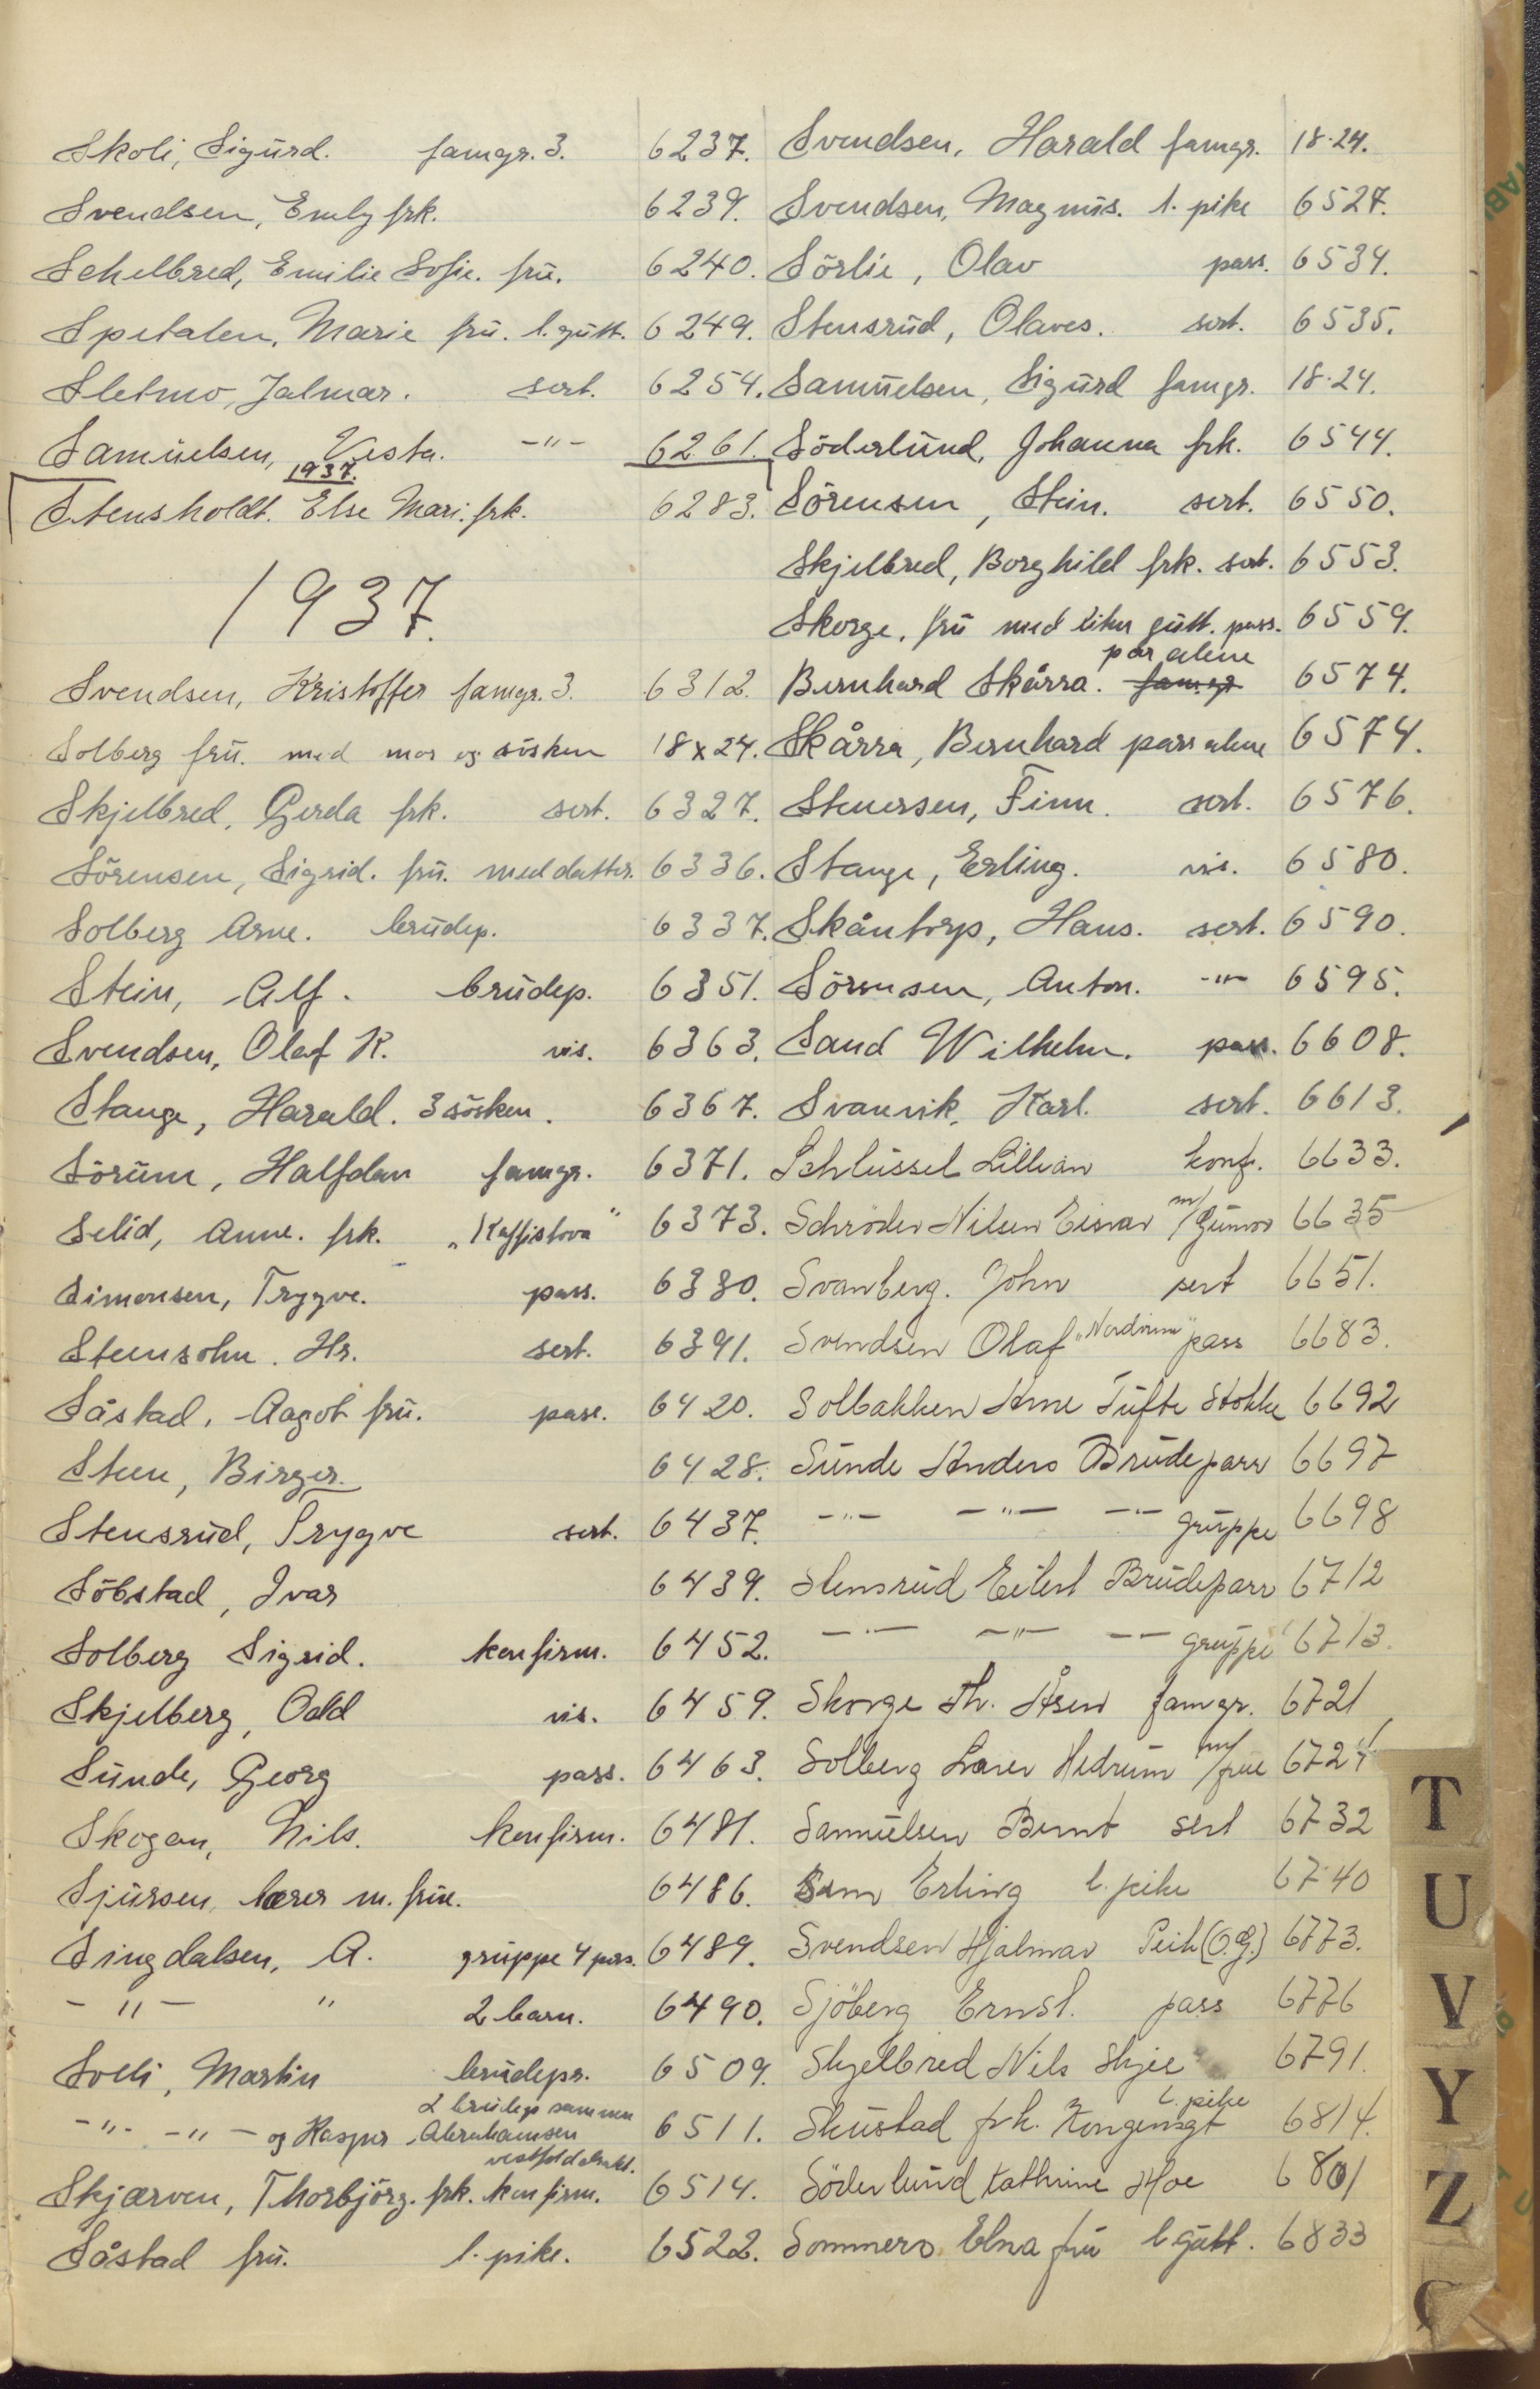 Skoli, Sigurd. famgr. 3. 6237.
Svendsen, Emly frk. 6239.
Schelbred, Emilie Sofie. frü. 6240.
Spetalen, Marie frü. l. gütt. 6249.
Sletmo, Jalmar. sert. 6254.
Samüelsen, Vesta. -"- 6261.
1937.
Stensholdt. Else Mari. frk. 6283.
1937.
Svendsen, Kristoffer famgr. 3. 6312.
Solberg frü. med mor og sösken 18x24.
Skjelbred, Gerda frk. sert. 6327.
Sörensen, Sigrid. frü. med datter. 6336.
Solberg Arne. brüdep. 6337.
Stein, Alf. brüdep. 6351.
Svendsen, Olaf K. vis. 6363.
Stange, Harald. 3 sösken. 6367.
Sörüm, Halfdan famgr. 6371.
Selid, Anne. frk. „Kaffistova" 6373.
Simonsen, Trygve. pass. 6380.
Steensohn. Hr. sert. 6391.
Såstad, Aagot frü. pass. 6420.
Steen, Birger. 6428.
Stensrüd, Trygve sert. 6437.
Söbstad, Ivar 6439.
Solberg Sigrid. konfirm. 6452.
Skjelberg, Odd vis. 6459.
Sünde, Georg pass. 6463.
Skogan, Nils. konfirm. 6481.
Sjürsen, lærer m. früe. 6486.
Singdalsen, A. grüppe 4 pers. 6489.
-"- " 2 barn. 6490.
Solli, Martin brüdepr. 6509.
2 brüdep sammen
-"- -"- og Kasper Abrahamsen 6511.
Skjærven, Thorbjörg. frk. konfirm. 6514.
Såstad frü. l. pike. 6522.
Svendsen, Harald famgr. 18·24.
Svendsen, Magnüs. l. pike 6527.
Sörlie, Olav pass. 6534.
Stensrüd, Olaves. sert. 6535.
Samüelsen, Sigürd famgr. 18·24.
Söderlünd, Johanna frk. 6544.
Sörensen, Stein. sert. 6550.
Skjelbred, Borghild frk. sert. 6553.
Skorge, frü med liten gütt. pass. 6559.
par alene
Bernhard Skårra. famgr 6574.
Skårra, Bernhard pass alene 6574.
Stenersen, Finn. sert. 6576.
Stange, Erling. vis. 6580.
Skåntorp, Hans. sert. 6590.
Sörensen, Anton. -"- 6595.
Sand Wilhelm. pass. 6608.
Svanvik, Karl. sert. 6613.
Schlüssel Lillian konf. 6633.
Schröder Nilsen Eisvar m/Günvor 6635
Svanberg. John sert 6651.
Svendsen Olaf pass 6683.
Solbakken Arne Tüfte Stokke 6692
Sünde Anders Brüdeparr 6697
-"- -"- -"- grüppe 6698
Stensrüd Eilert Brüdeparr 6712
-"- -"- -"- grüppe 6713.
Skorge Th. Åsen famgr. 6721
Solberg Lærer Hedrüm m/frue 6724
Samüelsen Bernt sert 6732
Sem Erling l. pike 6740
Svendsen Hjalmar (O.G.) 6773.
Sjöberg Ernst. pass 6776
Skjelbred Nils Skjee 6791.
l. pike
Sküstad frk. Kongensgt 6814.
Söderlünd Kathrine Moe 6801
Sommero Elna frü l gütt. 6833
T
U
V
Y
Z